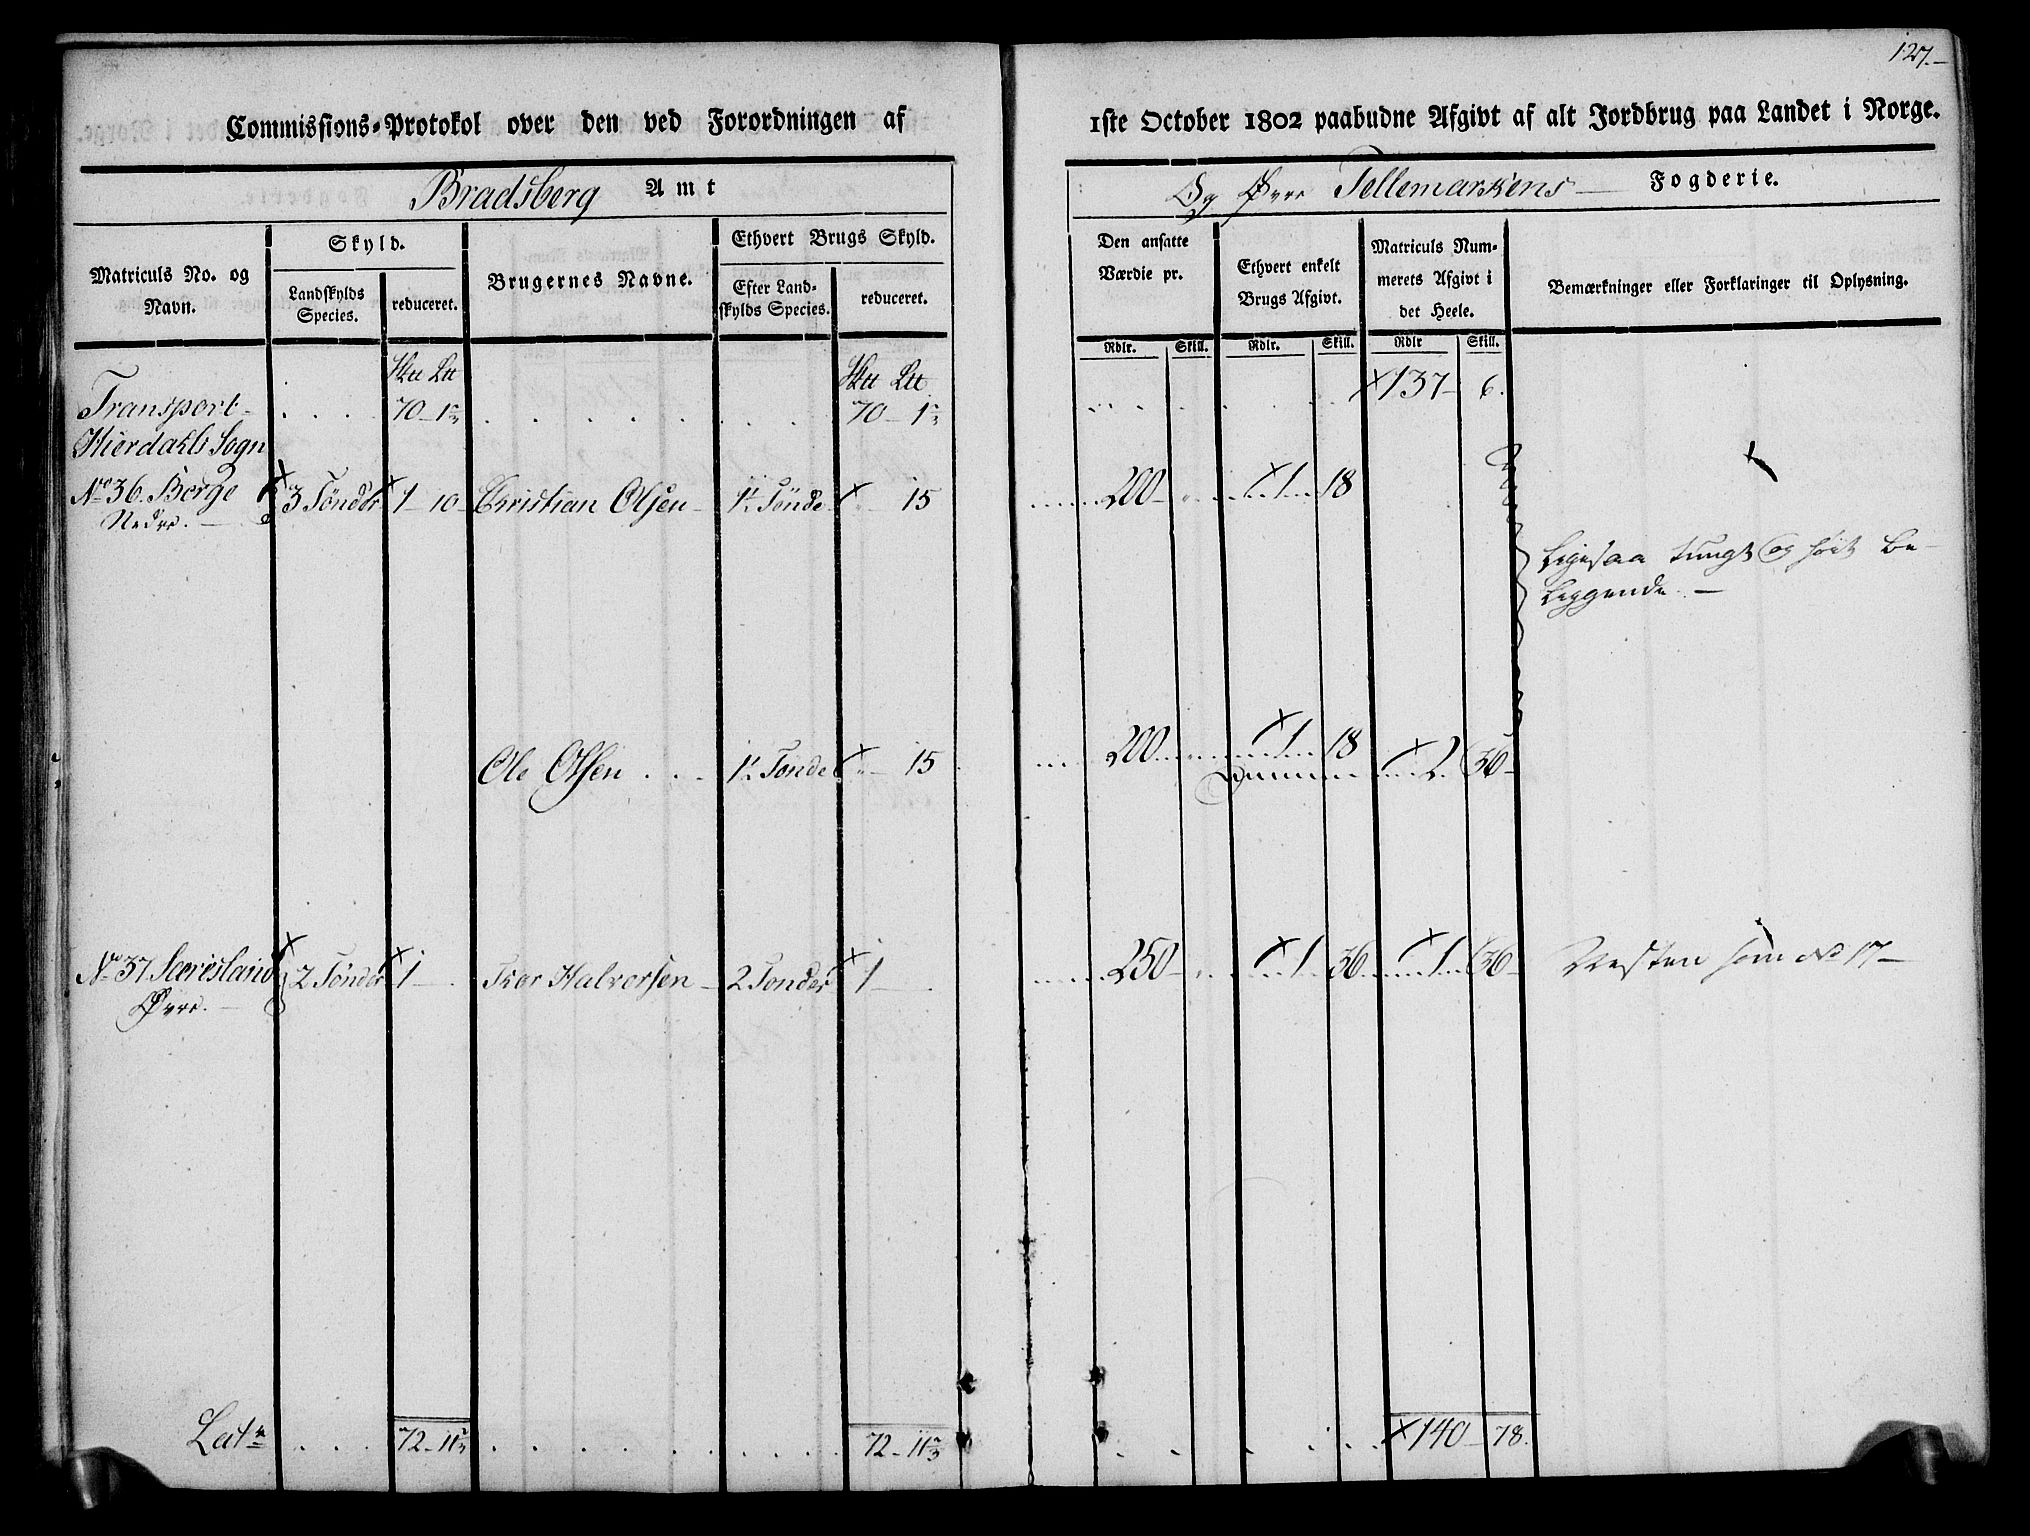 127.
Commissions-Protokol over den ved Forordningen af 1ste October 1802 paabudne Afgivt af alt Jordbrug paa Landet i Norge.
Bradsberg Amt
Og Øvre Tellemarkens Fogderie.
Matriculs No. og Navn.
Skyld.
Landskylds Species.
reduceret.
Brugernes Navne.
Ethvert Brugs Skyld.
Efter Landskylds Species.
reduceret.
Den ansatte Værdie pr.
Ethvert enkelt Brugs Afgivt.
Matriculs Nummerets Afgivt i det Heele.
Bemærkninger eller Forklaringer til Oplysning.
Rdlr. Skill. Rdlr. Skill. Rdlr Skill.
Transport 70 - 1 70 - 1 137 - 6.
Hierdahls Sogn
No 36. Berge 3 Tönder 1 - 10 Christian Olsen 1½ Tönde 15 200 1 18
Nedre.
Ligesaa tungt og höit be-
liggende.
Ole Olsen 1½ Tönde 15 200 1 18
Summa 2 36
No 37 2 Tönder 1 Halvorsen 2 Tönder 1 250 1 36 1 36 som No 17
Øvre.
Lat 72 - 11 72 - 11 140 - 78.